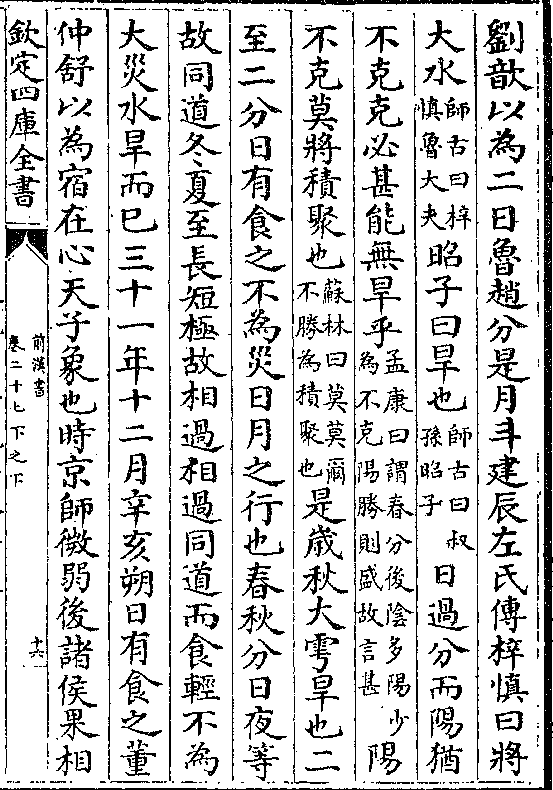 劉歆以為二日魯趙分是月斗建辰左氏傳梓慎曰將
大水師古曰梓慎魯大夫昭子曰旱也師古曰叔孫昭子日過分而陽猶
不克克必甚能無旱乎孟康曰謂春分後陰多陽少為不克陽勝則盛故言甚陽
不克莫將積聚也蘇林曰莫莫爾不勝為積聚也是歳秋大雩旱也二
至二分日有食之不為災日月之行也春秋分日夜等
故同道冬夏至長短極故相過相過同道而食輕不為
大災水旱而已三十一年十二月辛亥朔日有食之董
仲舒以為宿在心天子象也時京師微弱後諸侯果相
欽定四庫全書
前漢書
卷二十七下之下
十六